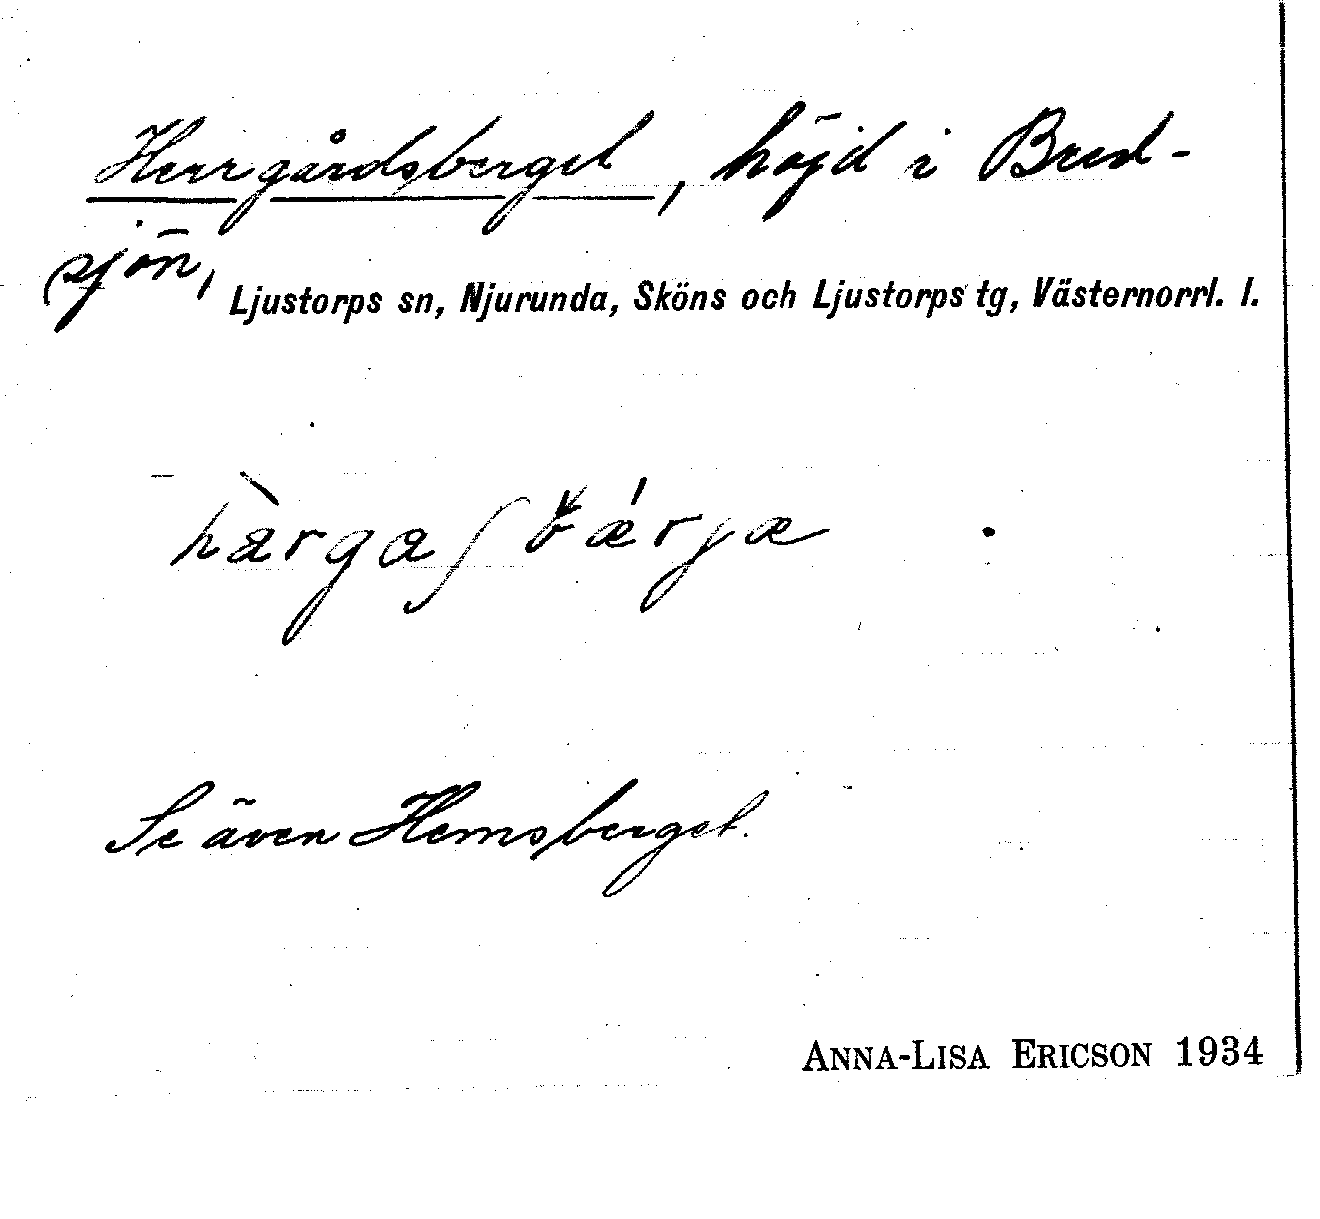 Herrgårdsberget, höjd i Bred-
sjön,
Ljustorps sn, Njurunda, Sköns och Ljustorps tg, Västernorrl. l.
Se även Hemsberget.
ANNA-LISA ERICSON 1934